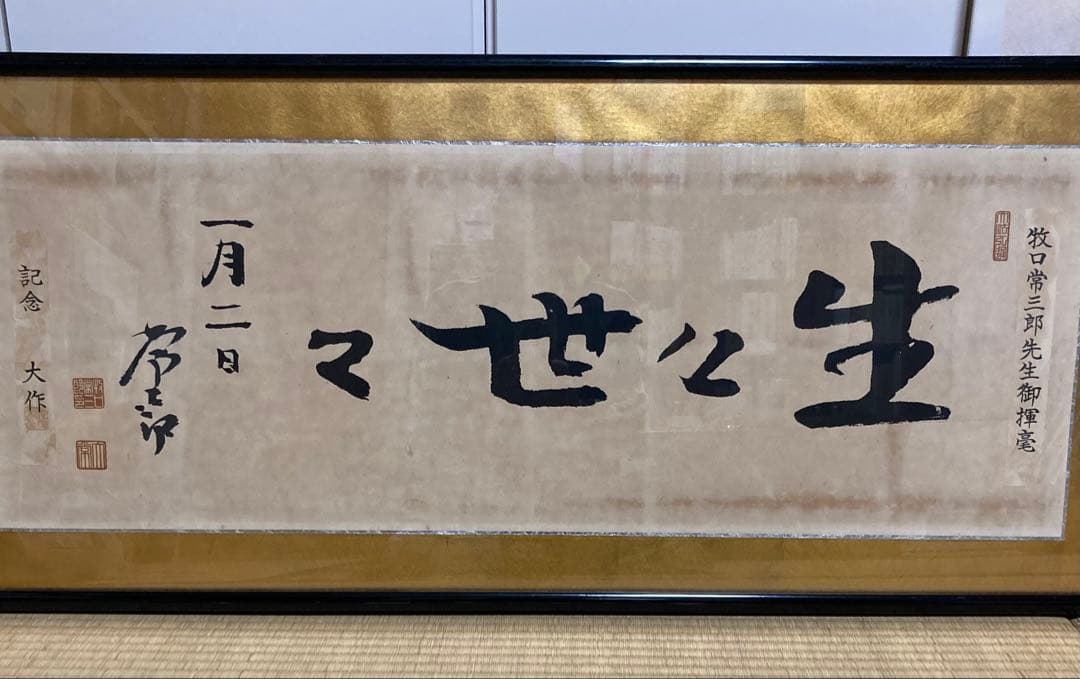 牧口常三郎先生御揮毫
生々世々
一月二日
常三郎
記念 大作